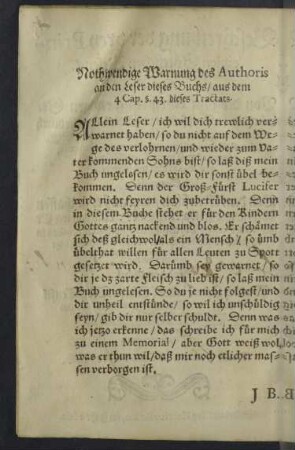 Nothwendige Warnung des Authoris
an den Leser dieses Buchs / aus dem
4 Cap. §. 43. dieses Tractats.
Allein Leser / ich wil dich trewlich ver-
warnet haben / so du nicht auf dem We-
ge des verlohrnen / und wieder zum Va-
ter kommenden Sohns bist / so laß diß mein
Buch ungelesen / es wird dir sonst übel be-
kommen. Denn der Groß-Fürst Lucifer
wird nicht feyren dich zubetrüben. Denn
in diesem Buche stehet er für den Kindern
Gottes gantz nackend und blos. Er schämet
sich deß gleichwol / als ein Mensch / so ümb
übelthat willen für allen Leuten zu Spott
gesetzet wird. Darümb sey gewarnet / so
dir je dz zarte Fleisch zu lieb ist / so laß mein
Buch ungelesen. So du je nicht folgest / und
dir unheil entstünde / so wil ich unschüldig
seyn / gib dir nur selber schuldt. Denn was
ich jetzo erkenne / das schreibe ich für mich
zu einem Memorial / aber Gott weiß wol,
was er thun wil / daß mir noch etlicher mas-
sen verborgen ist.
J B..B